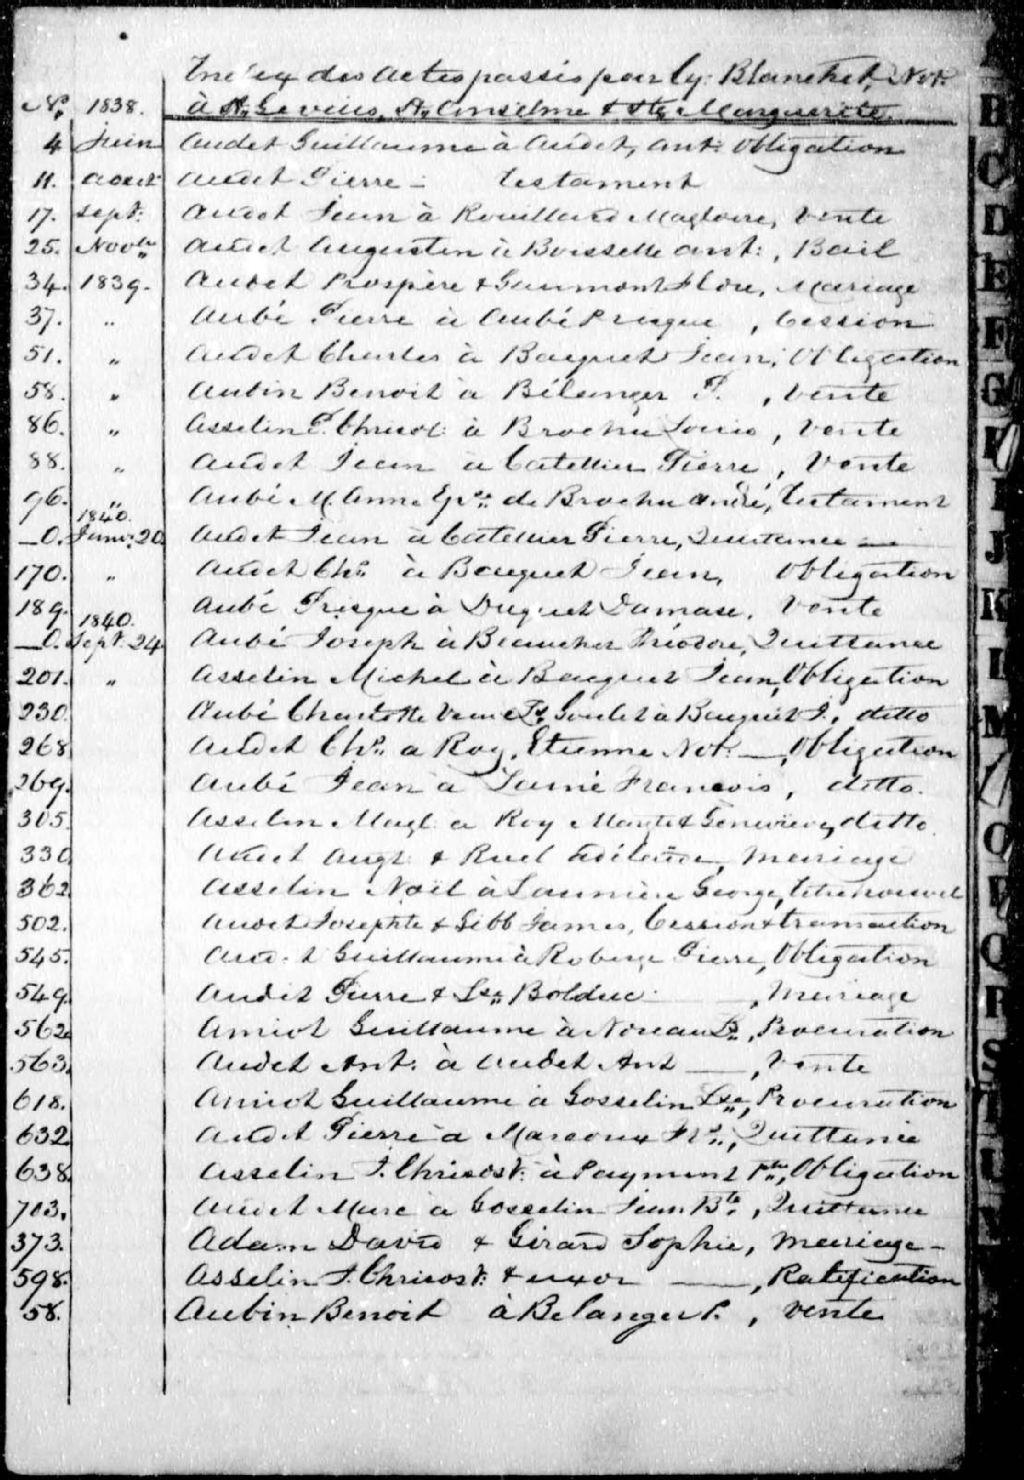 Index des actes passés par Cy. Blanchet, Not.
No. 1838. à St. Gervais, St. Anselme & Ste. Marguerite.
4 Juin Audet Guillaume à Audet, Ant: Obligation
11. aout Audet Pierre - testament
17. Sept: Audet Jean à Rouillard Magloire, Vente
25. Novbre Audet Augustin à Boisselle Ant:, Bail
34. 1839. Audet Prospère & Gaumont Flore, Mariage
37. " Aubé Pierre à Aubé Prisque, Cession
51. " Audet Charles à Baquet Jean, Obligation
58. " Aubin Benoit à Bélanger P., Vente
86. " Asselin J. Chrisost: à Brochu Louis, Vente
88. " Audet Jean à Catellier Pierre, Vente
96. " Aubé M. Anne Epse de Brochu André, Testament
1840.
_0. Janv: 20. Audet Jean à Catellier Pierre, Quittance —
170. " Audet Chs à Baquet Jean, Obligation
189. Aubé Prisque à Duquet Damase, Vente
1840.
_0. Sept. 24 Aubé Joseph à Beaucher Théodore, Quittance
201. " Asselin Michel à Baquet Jean, Obligation
230. Aubé Charlotte Veuve Goulet à Baquet J., ditto
268 Audet Chs à Roy, Etienne Not. —, Obligation
269. Aubé Jean à Lainé Francois, ditto.
305. Asselin Magl: à Roy Margte & Geneviève, ditto
330 Audet Augt: & Ruel Adélaïde, Mariage
362 Asselin Noël à George, titre nouvel
502. Audet Josephte & Gibb James, Cession & transaction
545. Audet Guillaume à Roberge Pierre, Obligation
549. Audet Pierre & Lse Bolduc —, Mariage
562 Amiot Guillaume à Noreau, Procuration
563. Audet Ant: à Audet Ant —, Vente
618. Amiot Guillaume à Gosselin, Procuration
632 Audet Pierre à Marcoux Frs, Quittance
638 Asselin J. Chrisost: à Payment, Obligation
703. Audet Marc à Gosselin Jean Bte, Quittance
373. Adam David & Girard Sophie, Mariage -
598. Asselin J. Chrisost: & uxor —, Ratification
58. Aubin Benoit à Belanger P., Vente
B
C
D
E
F
G
J
K
L
M
O
P
Q
R
S
T
U